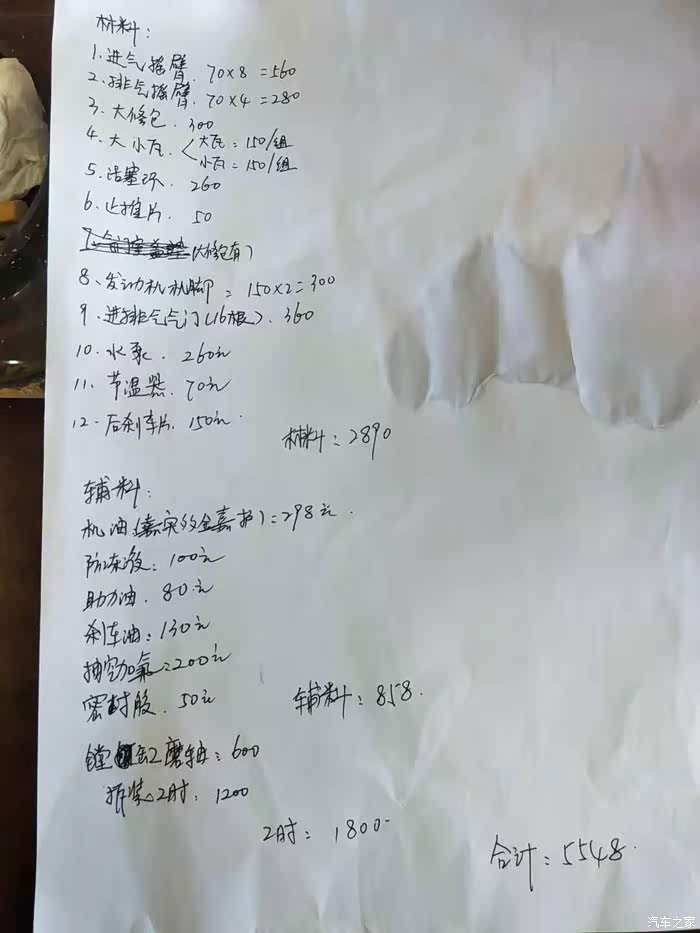 材料:
1、进气摇臂. 70×8=560
2、排气摇臂. 70×4=280
3、大修包. 300
4、大小瓦. < 大瓦=150/组
小瓦=150/组
5、活塞环. 260
6、止推片. 50
7、气门室盖垫(大修包有)
8、发动机机脚 = 150×2=300
9、进排气气门(16根). 360
10、水泵. 260元
11、节温器. 70元
12、后刹车片. 150元.
材料:2890
辅料:
机油(嘉实多金嘉护)=298元.
防冻液:100元
助力油. 80元
刹车油:130元
抽空加氟=200元
密封胶. 50元
辅料:858.
镗缸磨轴:600
拆装工时:1200
工时:1800
合计:5548.
汽车之家